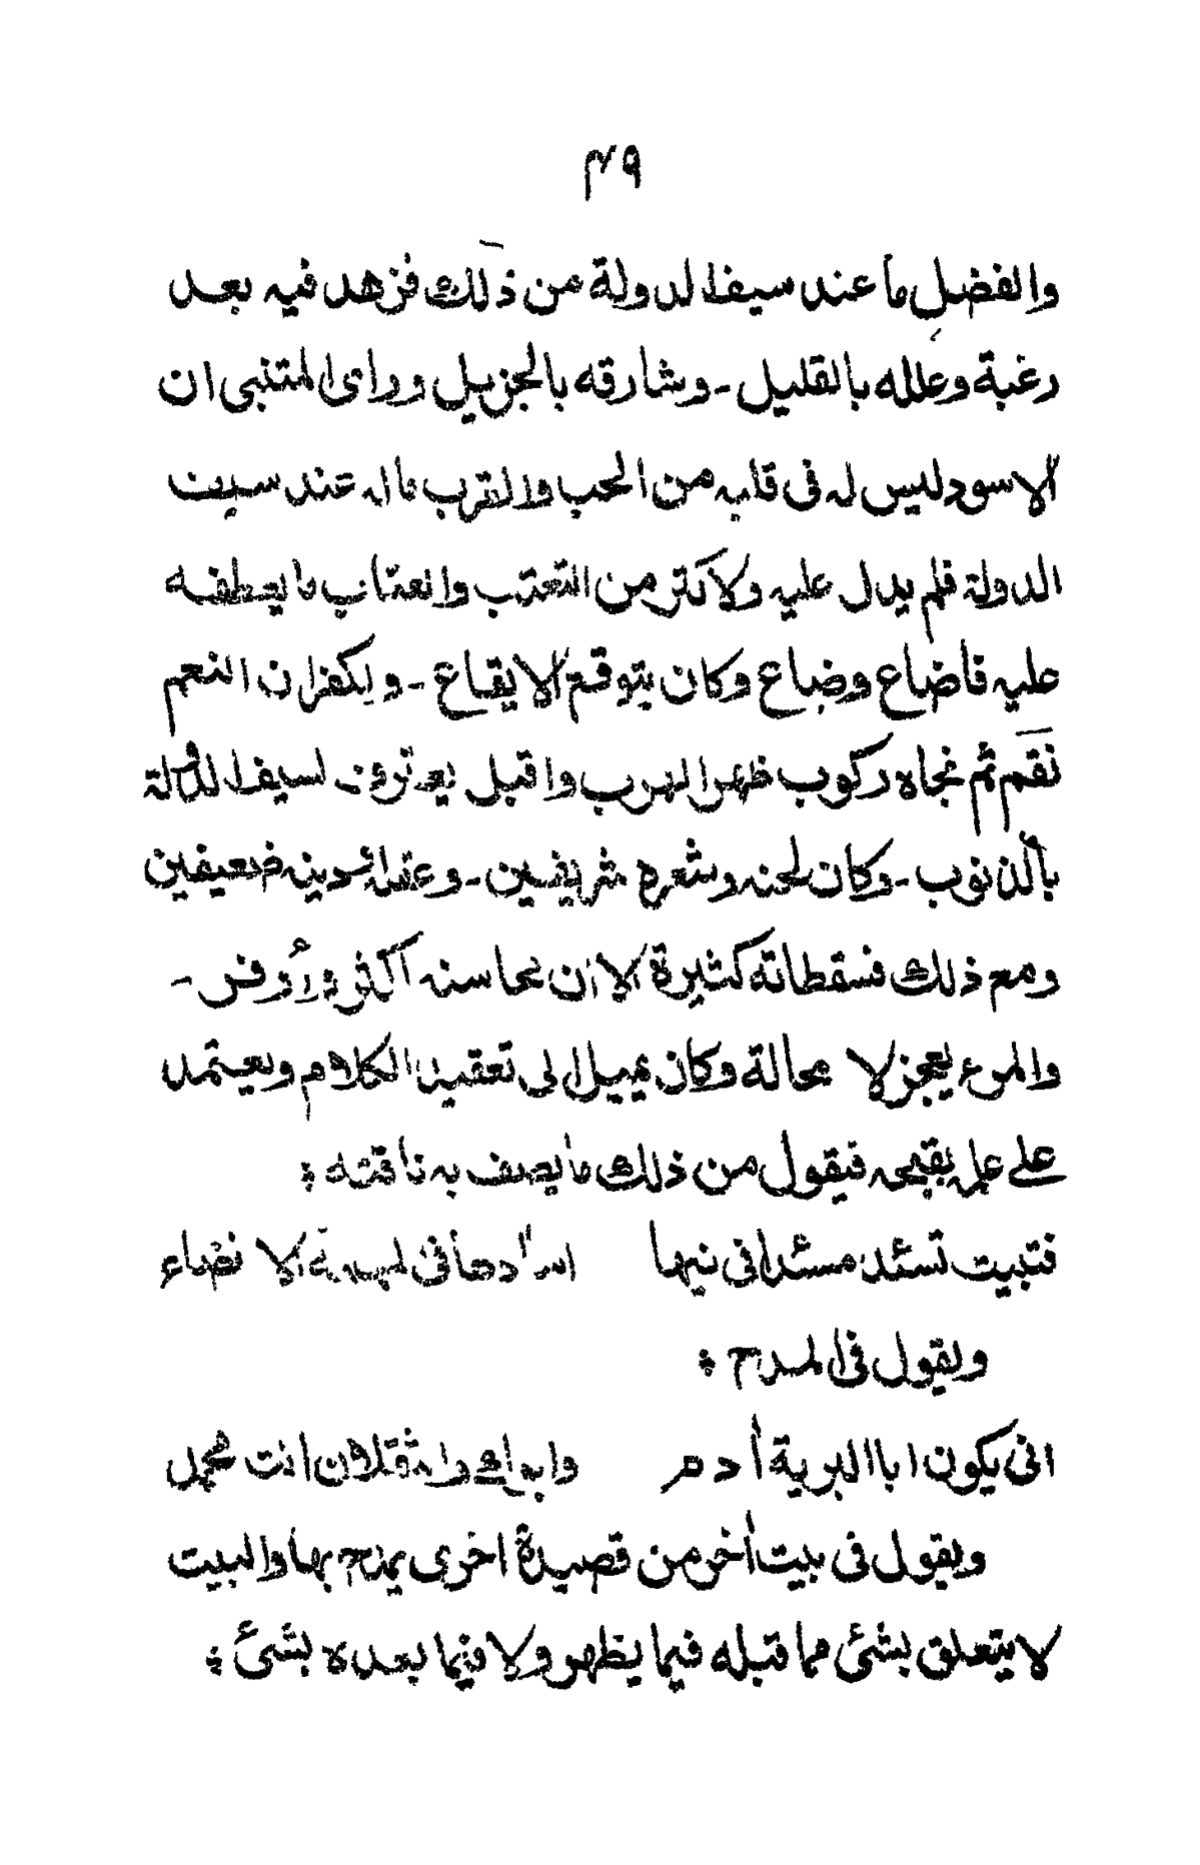 ٤٩
والفضلِ ما عند سيف الدولة من ذلك فزهد فيه بعد
رغبة وعلله بالقليل - وشارقه بالجزيل ورأى المتنبي ان
الاسود ليس له فى قلبه من الحب والقرب ماله عند سيف
الدولة فلم يدل عليه ولا كثر من التعتب والعتاب ما يعطفه
عليه فأضاع وضاع وكان يتوقع الايقاع - ولكفران النعم
نقم ثم نجاه ركوب ظهر الهرب واقبل يعترف لسيف الدولة
بالذنوب - وكان لحنه وشعره شريفين - وعقله ودينه ضعيفين
ومع ذلك فسقطاته كثيرة الا ان محاسنه اكثر وأوفر -
والمرء يعجز لا محالة وكان يميل الى تعقيد الكلام ويعتمد
على علمه بقبيحه فيقول من ذلك ما يصف به ناقته ؛
فتبيت تسئد مسئدا فى نيها اسآدها فى المهمة الا نضاء
ويقول فى المدح ؛
انى يكون ابا البرية أدم وابوك والثقلان انت محمد
ويقول فى بيت أخر من قصيدة اخرى يمدح بها والبيت
لا يتعلق بشئ مما قبله فيما يظهر ولا فيما بعده بشئ ؛